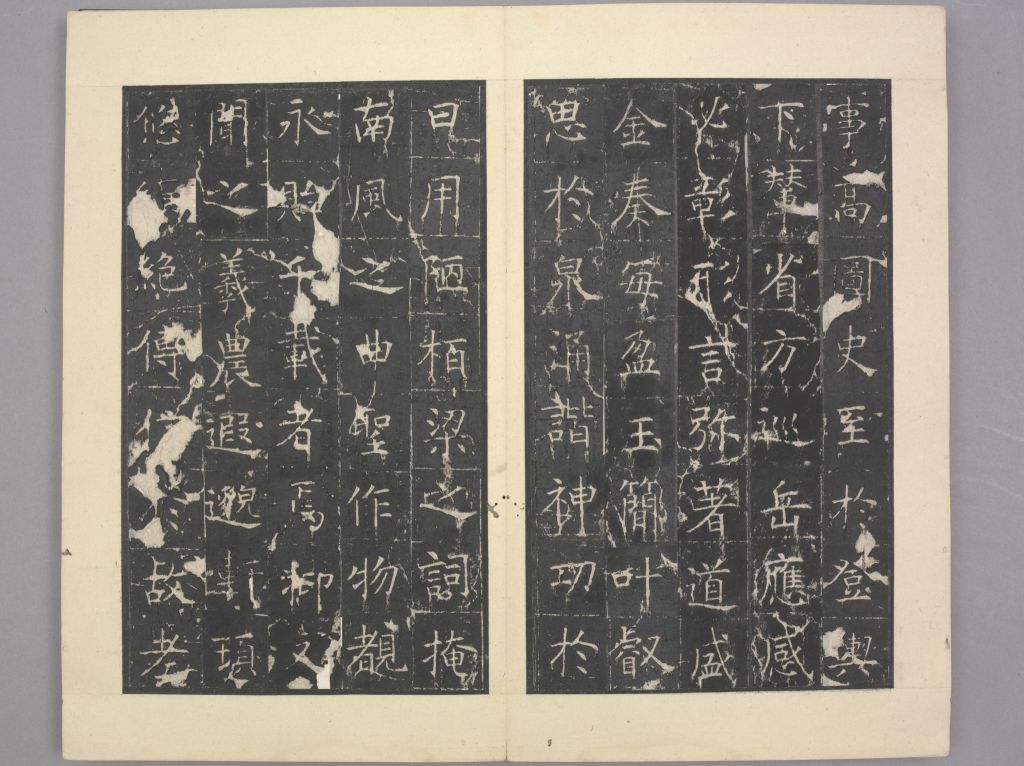 事高圖史至於登輿
下輦省方巡岳應感
必彰形言弥著道盛
金奏每盈玉簡叶叡
思於泉涌諧神功於
日用陋栢梁之詞掩
南風之曲聖作物覩
永貽千載者焉柳文
聞之羲農遐邈軒頊
悠絶得於故老